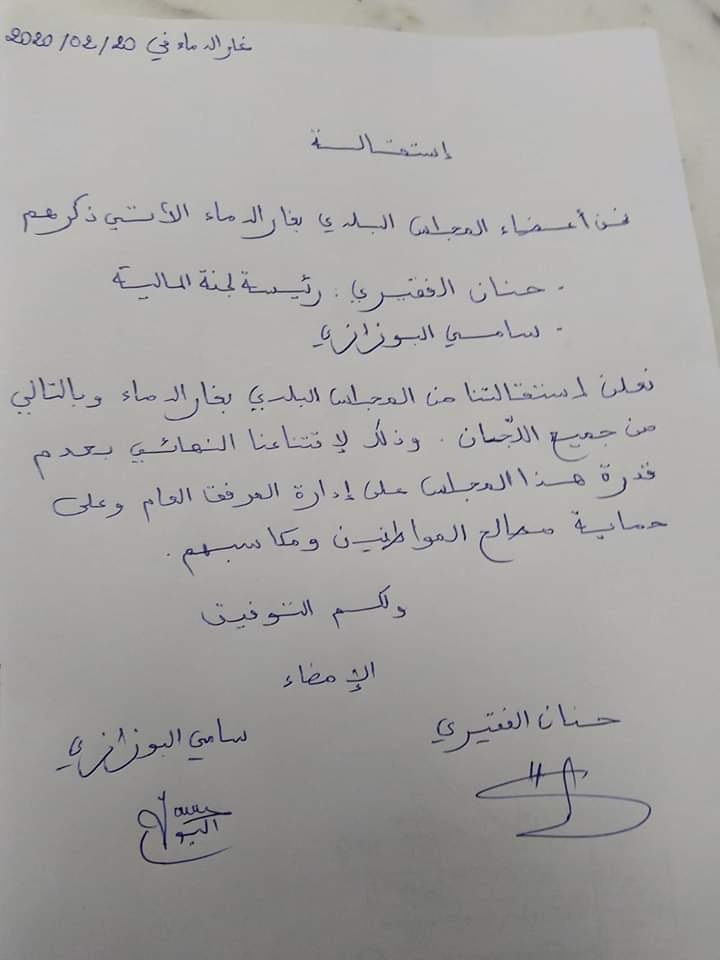 غار الدماء في 2020/02/20
إستقالة
نحن أعضاء المجلس البلدي بغار الدماء الآتي ذكرهم
- حنان الفقيري : رئيسة لجنة المالية
- سامي البوزازي
نعلن إستقالتنا من المجلس البلدي بغار الدماء وبالتالي
من جميع اللّجان . وذلك لإقتناعنا النهائي بعدم
قدرة هذا المجلس على إدارة المرفق العام وعلى
حماية مصالح المواطنين ومكاسبهم .
ولكم التوفيق
الإمضاء
حنان الفقيري
سامي البوزازي